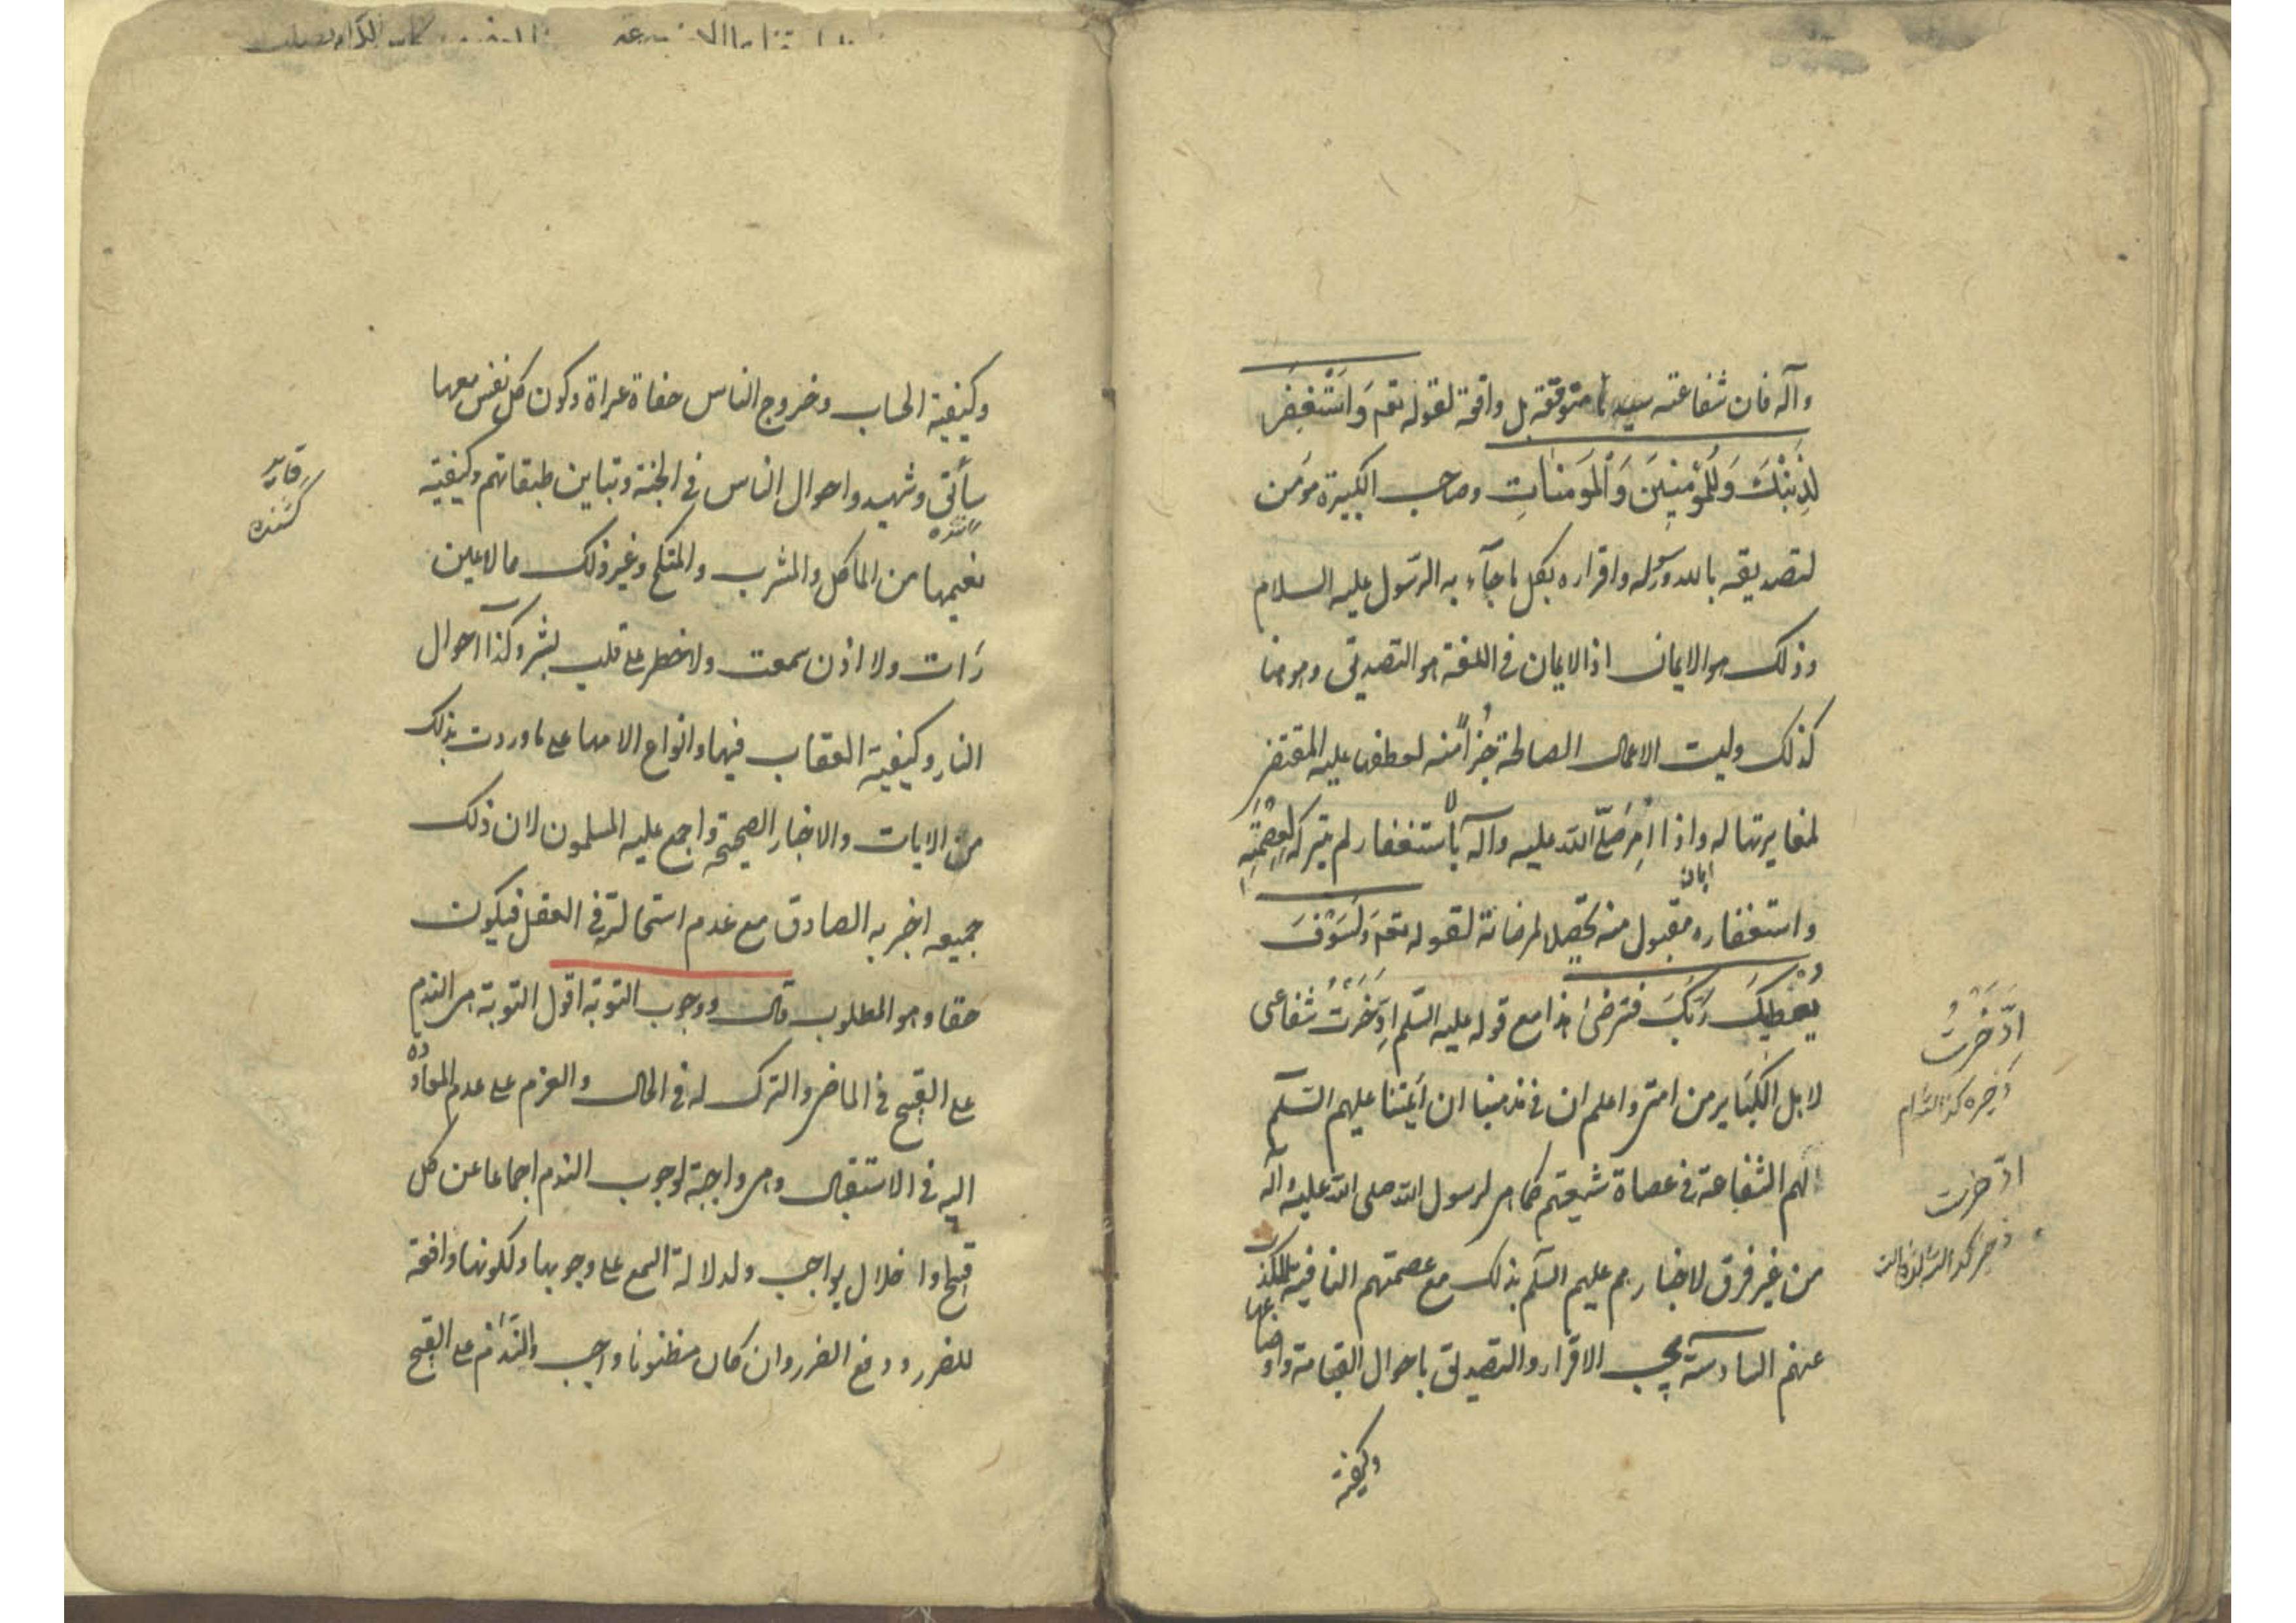 وآله فان شفاعته سيدنا متوقفة بل واقعة لقوله تعم وَاسْتَغْفِرْ
لِذَنْبِكَ وَلِلْمُؤْمِنِينَ وَالْمُؤْمِنَاتِ وصاحب الكبيرة مؤمن
لتصديقه بالله ورسوله واقراره بكل ما جآء به الرّسول عليه السلام
وذلك هو الايمان اذ الايمان فى اللغة هو التصديق وهو هنا
كذلك وليست الاعمال الصالحة جُزْأً منه لعطفها عليه المقتضى
لمغايرتها له واذا اُمِرَ صَلَّى الله عليه وآله بالاستغفار لم يتركه لِعِصْمَتِهِ
واستغفاره مقبول منه تحصيلا لمرضاته لقوله تعم وَلَسَوْفَ
يُعْطِيكَ رَبُّكَ فترضىٰ هذا مع قوله عليه السّلم اِدَّخَرْتُ شفاعتى
لاهل الكَبَاير من امتى واعلم ان فى مذهبنا ان أئمتنا عليهم السّلم
لهم الشفاعة فى عصاة شيعتهم كما هى لرسول الله صلى الله عليه وآله
من غير فرق لاخبارهم عليهم السّلم بذلك مع عصمتهم النافية للكذب
عنهم السادسة يجب الاقرار والتصديق باحوال القيامة واوضاعها
وكيفية
ادَّخَرْتُ
ذخيره كردانيدام
ادّخرت
وكيفية الحساب وخروج الناس حفاة عراة وكون كل نفس معها
سائق وشهيد واحوال الناس فى الجنة وتباين طبقاتهم وكيفية
نعيمها من المأكل والمشرب والمنكح وغير ذلك مما لا عين
رَات ولا اذن سمعت ولا خطر على قلب بشر وكذا احوال
النار وكيفية العقاب فيها وانواع الامها على ما وردت بذلك
من الايات والاخبار الصحيحة واجمع عليه المسلمون لان ذلك
جميعه اخبر به الصادق مع عدم استحالته فى العقل فيكون
حقا وهو المطلوب قال ووجوب التوبة اقول التوبة هى الندم
على القبيح فى الماضى والترك له فى الحال والعزم على عدم المعاودة
اليه فى الاستقبال وهى واجبة لوجوب الندم اجماعا عن كل
قبيح او اخلال بواجب ولدلالة السمع على وجوبها ولكونها دافعة
للضرر ودفع الضرر وان كان مظنونا واجب والنّدم على القبيح
كشنده